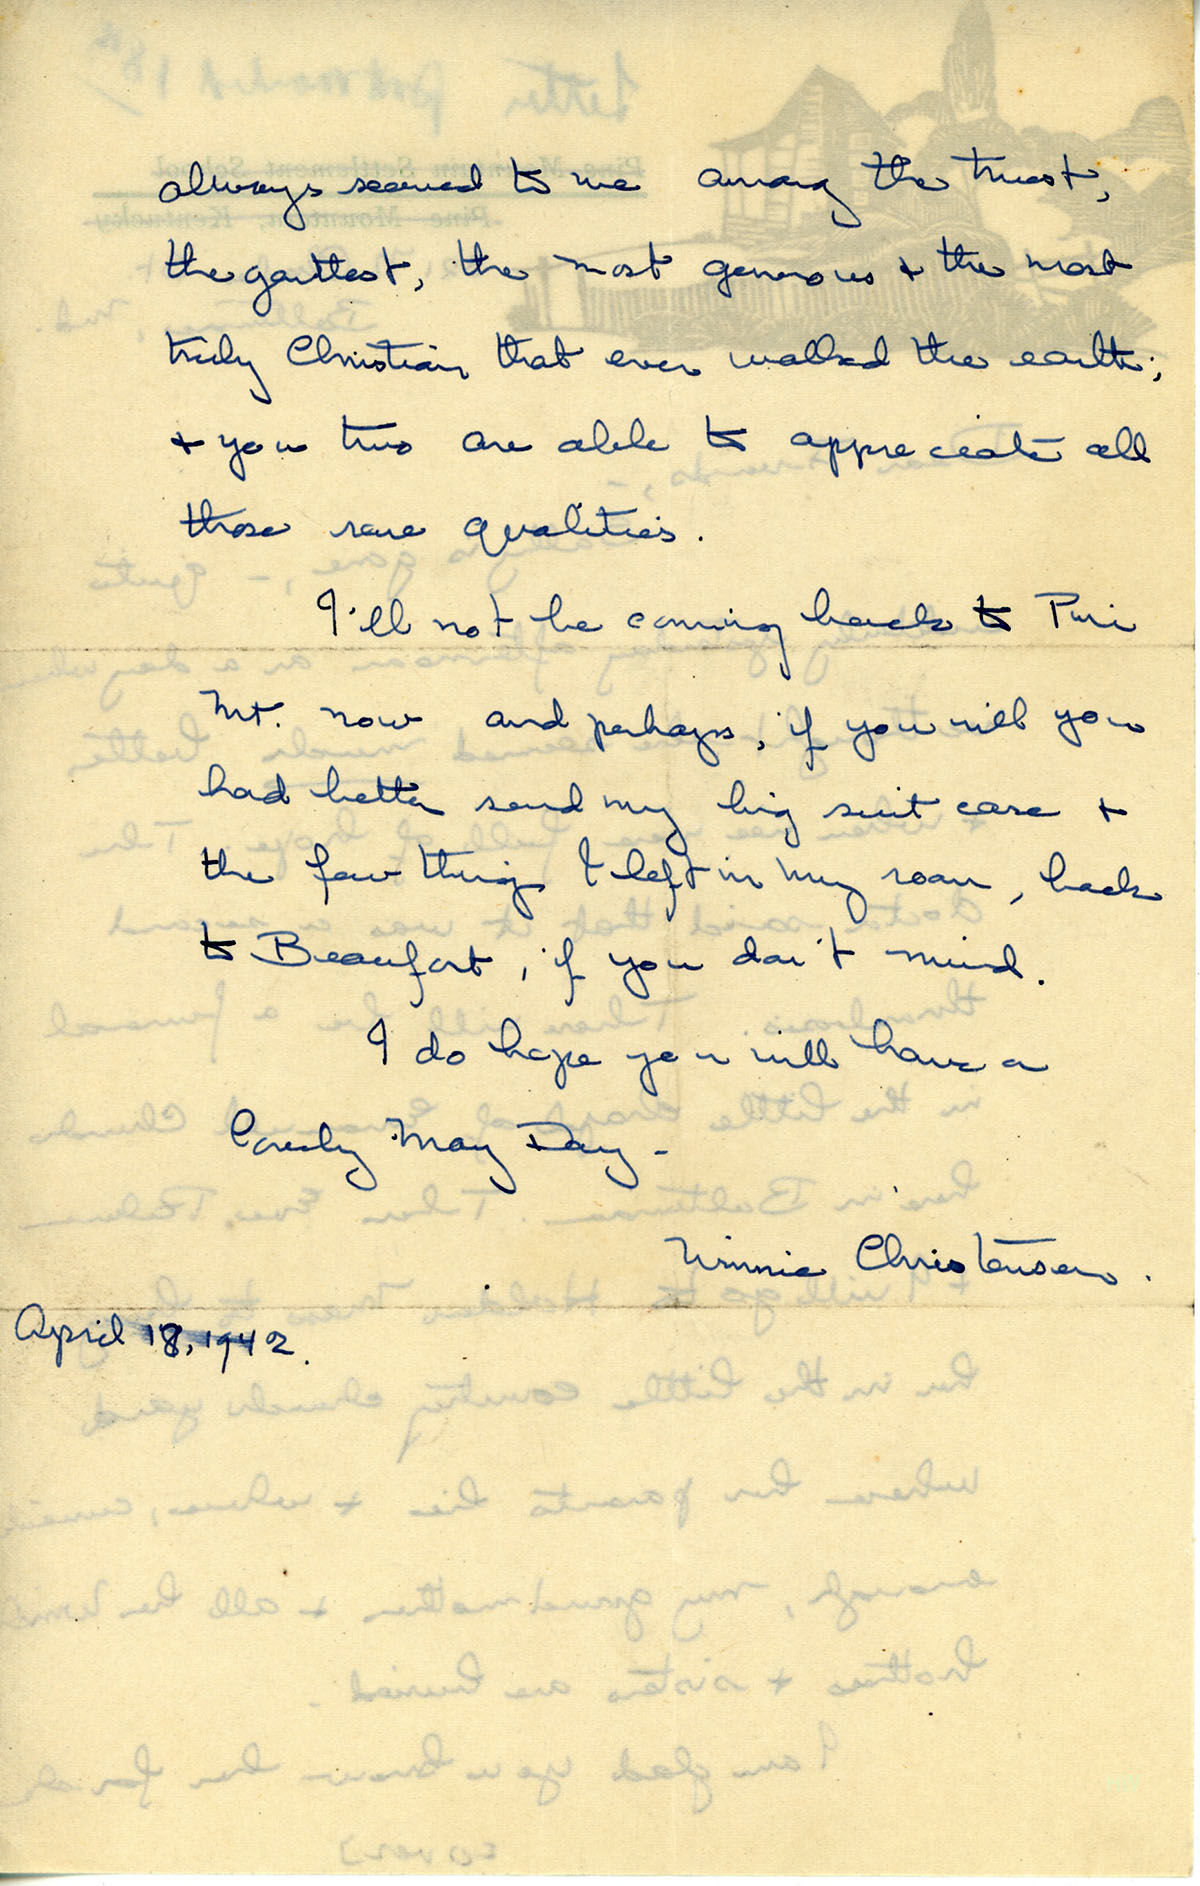 always seemed to me among the truest,
the gentlest, the most generous + the most
truly Christian that ever walked the earth;
+ you two are able to appreciate all
those rare qualities.
I'll not be coming back to Pine
Mt. now and perhaps, if you will you
had better send my big suit case +
the few things I left in my room, back
to Beaufort, if you don't mind.
I do hope you will have a
lovely May Day -
Winnie Christensen.
April 18, 1942.